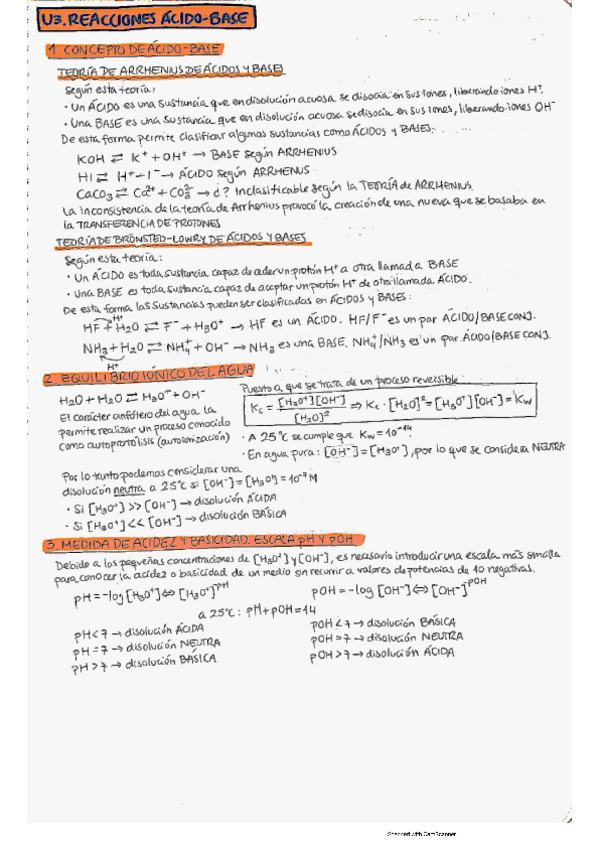 U3. REACCIONES ÁCIDO-BASE
1. CONCEPTO DE ÁCIDO-BASE
TEORÍA DE ARRHENIUS DE ÁCIDOS Y BASES
Según esta teoría:
· Un ÁCIDO es una sustancia que en disolución acuosa se disocia en sus iones, liberando iones H⁺.
· Una BASE es una sustancia que en disolución acuosa se disocia en sus iones, liberando iones OH⁻
De esta forma permite clasificar algunas sustancias como ÁCIDOS y BASES:
KOH ⇄ K⁺ + OH⁺ → BASE según ARRHENIUS
HI ⇄ H⁺ - I⁻ → ÁCIDO según ARRHENIUS
CaCO₃ ⇄ Ca²⁺ + CO₃²⁻ → ¿? Inclasificable según la TEORÍA de ARRHENIUS.
La inconsistencia de la teoría de Arrhenius provocó la creación de una nueva que se basaba en
la TRANSFERENCIA DE PROTONES
TEORÍA DE BRÖNSTED-LOWRY DE ÁCIDOS Y BASES
Según esta teoría:
· Un ÁCIDO es toda sustancia capaz de ceder un protón H⁺ a otra llamada BASE
· Una BASE es toda sustancia capaz de aceptar un protón H⁺ de otra llamada ÁCIDO.
De esta forma las sustancias pueden ser clasificadas en ÁCIDOS y BASES:
H⁺
HF + H₂O ⇄ F⁻ + H₃O⁺ → HF es un ÁCIDO. HF/F⁻ es un par ÁCIDO/BASE CONJ.
NH₃ + H₂O ⇄ NH₄⁺ + OH⁻ → NH₃ es una BASE. NH₄⁺/NH₃ es un par ÁCIDO/BASE CONJ.
H⁺
2. EQUILIBRIO IÓNICO DEL AGUA
H₂O + H₂O ⇄ H₃O⁺ + OH⁻
El carácter anfótero del agua la
permite realizar un proceso conocido
como autoprotólisis (autoionización)
Puesto a que se trata de un proceso reversible:
Kc = [H₃O⁺][OH⁻] / [H₂O]² ⇒ Kc · [H₂O]² = [H₃O⁺][OH⁻] = Kw
· A 25°C se cumple que Kw = 10⁻¹⁴.
· En agua pura: [OH⁻] = [H₃O⁺], por lo que se considera NEUTRA
Por lo tanto podemos considerar una
disolución neutra a 25°C si [OH⁻] = [H₃O⁺] = 10⁻⁷ M
· Si [H₃O⁺] >> [OH⁻] → disolución ÁCIDA
· Si [H₃O⁺] << [OH⁻] → disolución BÁSICA
3. MEDIDA DE ACIDEZ Y BASICIDAD. ESCALA pH Y pOH
Debido a las pequeñas concentraciones de [H₃O⁺] y [OH⁻], es necesario introducir una escala más sencilla
para conocer la acidez o basicidad de un medio sin recurrir a valores de potencias de 10 negativas.
pH = -log [H₃O⁺] ⇔ [H₃O⁺]^pH
pOH = -log [OH⁻] ⇔ [OH⁻]^pOH
a 25°C: pH + pOH = 14
pH < 7 → disolución ÁCIDA
pH = 7 → disolución NEUTRA
pH > 7 → disolución BÁSICA
pOH < 7 → disolución BÁSICA
pOH = 7 → disolución NEUTRA
pOH > 7 → disolución ÁCIDA
Scanned with CamScanner